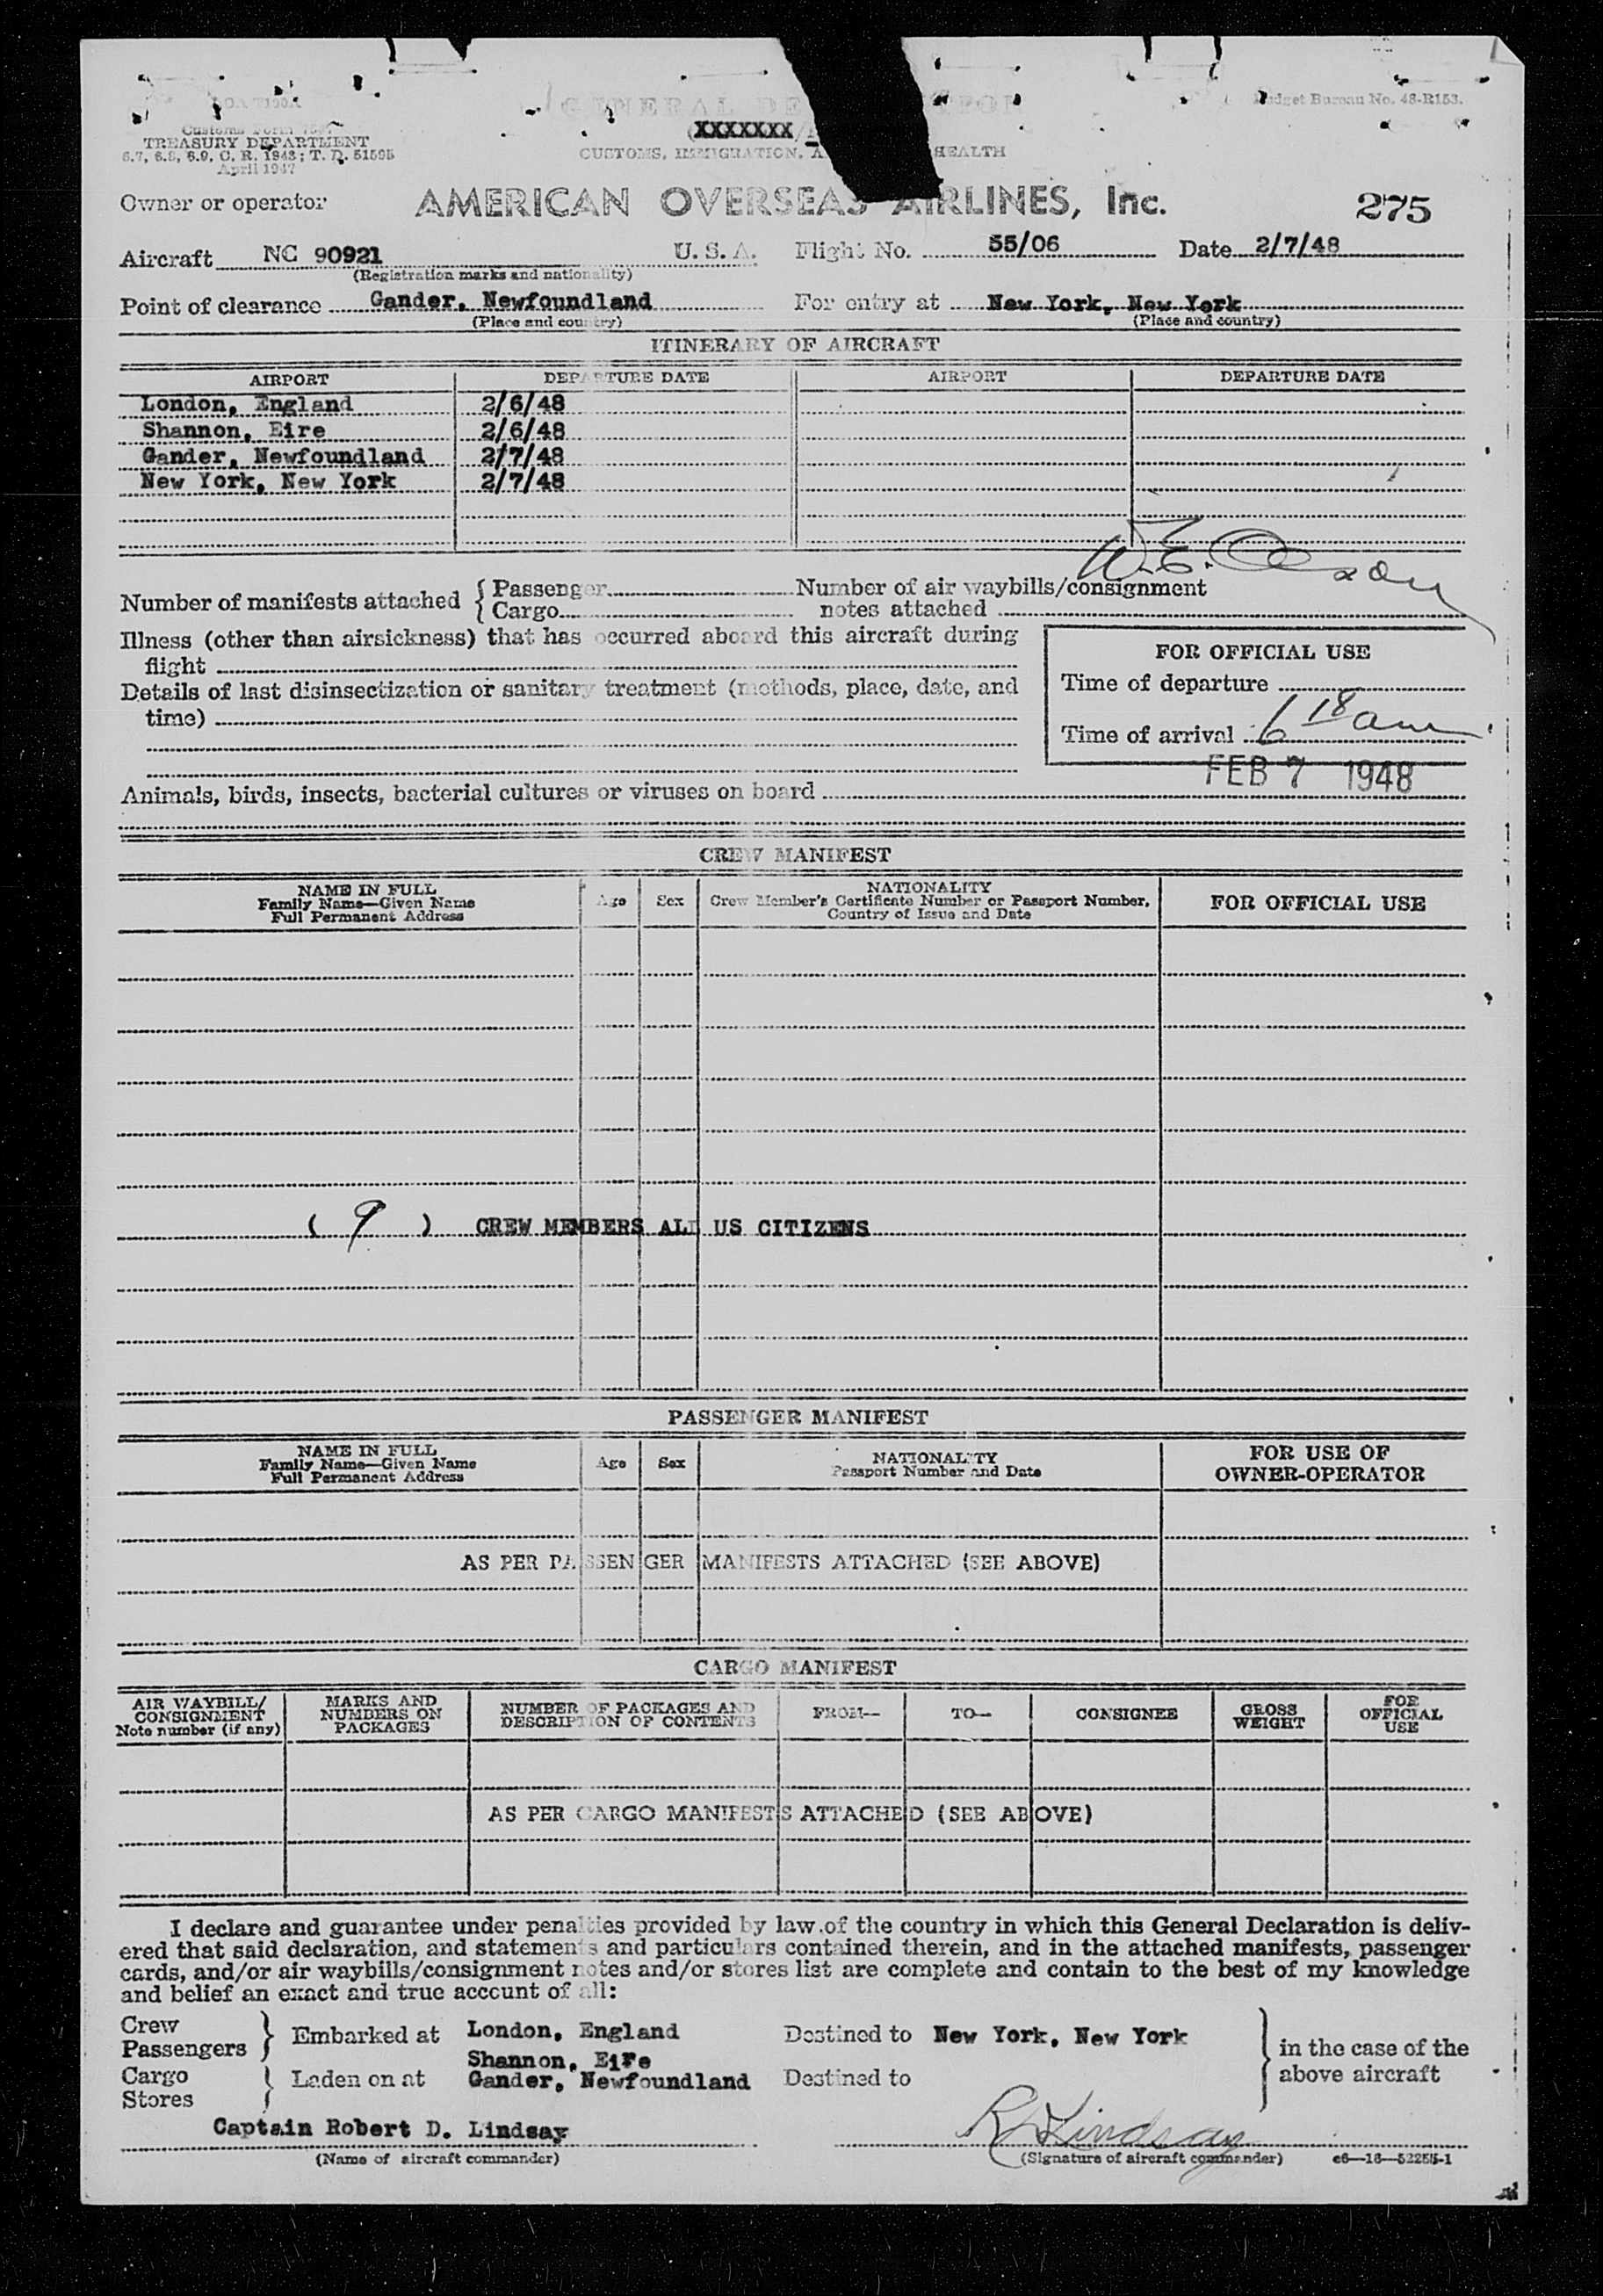 Budget Bureau No. 48-R153.
TREASURY DEPARTMENT
6.7, 6.8, 6.9, C. R. 1943; T. D. 51595
April 1947
XXXXXXX
CUSTOMS, IMMIGRATION, HEALTH
Owner or operator AMERICAN OVERSEAS AIRLINES, Inc. 275
Aircraft NC 90921 U. S. A. Flight No. 55/06 Date 2/7/48
(Registration marks and nationality)
Point of clearance Gander, Newfoundland For entry at New York, New York
(Place and country) (Place and country)
ITINERARY OF AIRCRAFT
AIRPORT DEPARTURE DATE AIRPORT DEPARTURE DATE
London, England 2/6/48
Shannon, Eire 2/6/48
Gander, Newfoundland 2/7/48
New York, New York 2/7/48
W.E.
Number of manifests attached { Passenger Number of air waybills/consignment
{ Cargo notes attached
Illness (other than airsickness) that has occurred aboard this aircraft during
flight
Details of last disinsectization or sanitary treatment (methods, place, date, and
time)
FOR OFFICIAL USE
Time of departure
Time of arrival 6 18 am
FEB 7 1948
Animals, birds, insects, bacterial cultures or viruses on board
CREW MANIFEST
NAME IN FULL
Family Name—Given Name
Full Permanent Address
Age
Sex
NATIONALITY
Crew Member's Certificate Number or Passport Number,
Country of Issue and Date
FOR OFFICIAL USE
( 9 ) CREW MEMBERS ALL US CITIZENS
PASSENGER MANIFEST
NAME IN FULL
Family Name—Given Name
Full Permanent Address
Age
Sex
NATIONALITY
Passport Number and Date
FOR USE OF
OWNER-OPERATOR
AS PER PASSENGER MANIFESTS ATTACHED (SEE ABOVE)
CARGO MANIFEST
AIR WAYBILL/
CONSIGNMENT
Note number (if any)
MARKS AND
NUMBERS ON
PACKAGES
NUMBER OF PACKAGES AND
DESCRIPTION OF CONTENTS
FROM—
TO—
CONSIGNEE
GROSS
WEIGHT
FOR
OFFICIAL
USE
AS PER CARGO MANIFESTS ATTACHED (SEE ABOVE)
I declare and guarantee under penalties provided by law of the country in which this General Declaration is deliv-
ered that said declaration, and statements and particulars contained therein, and in the attached manifests, passenger
cards, and/or air waybills/consignment notes and/or stores list are complete and contain to the best of my knowledge
and belief an exact and true account of all:
Crew
Passengers } Embarked at London, England Destined to New York, New York
Shannon, Eire
Cargo
Stores } Laden on at Gander, Newfoundland Destined to
} in the case of the
above aircraft
Captain Robert D. Lindsay R D Lindsay
(Name of aircraft commander) (Signature of aircraft commander) c6—16—52255-1